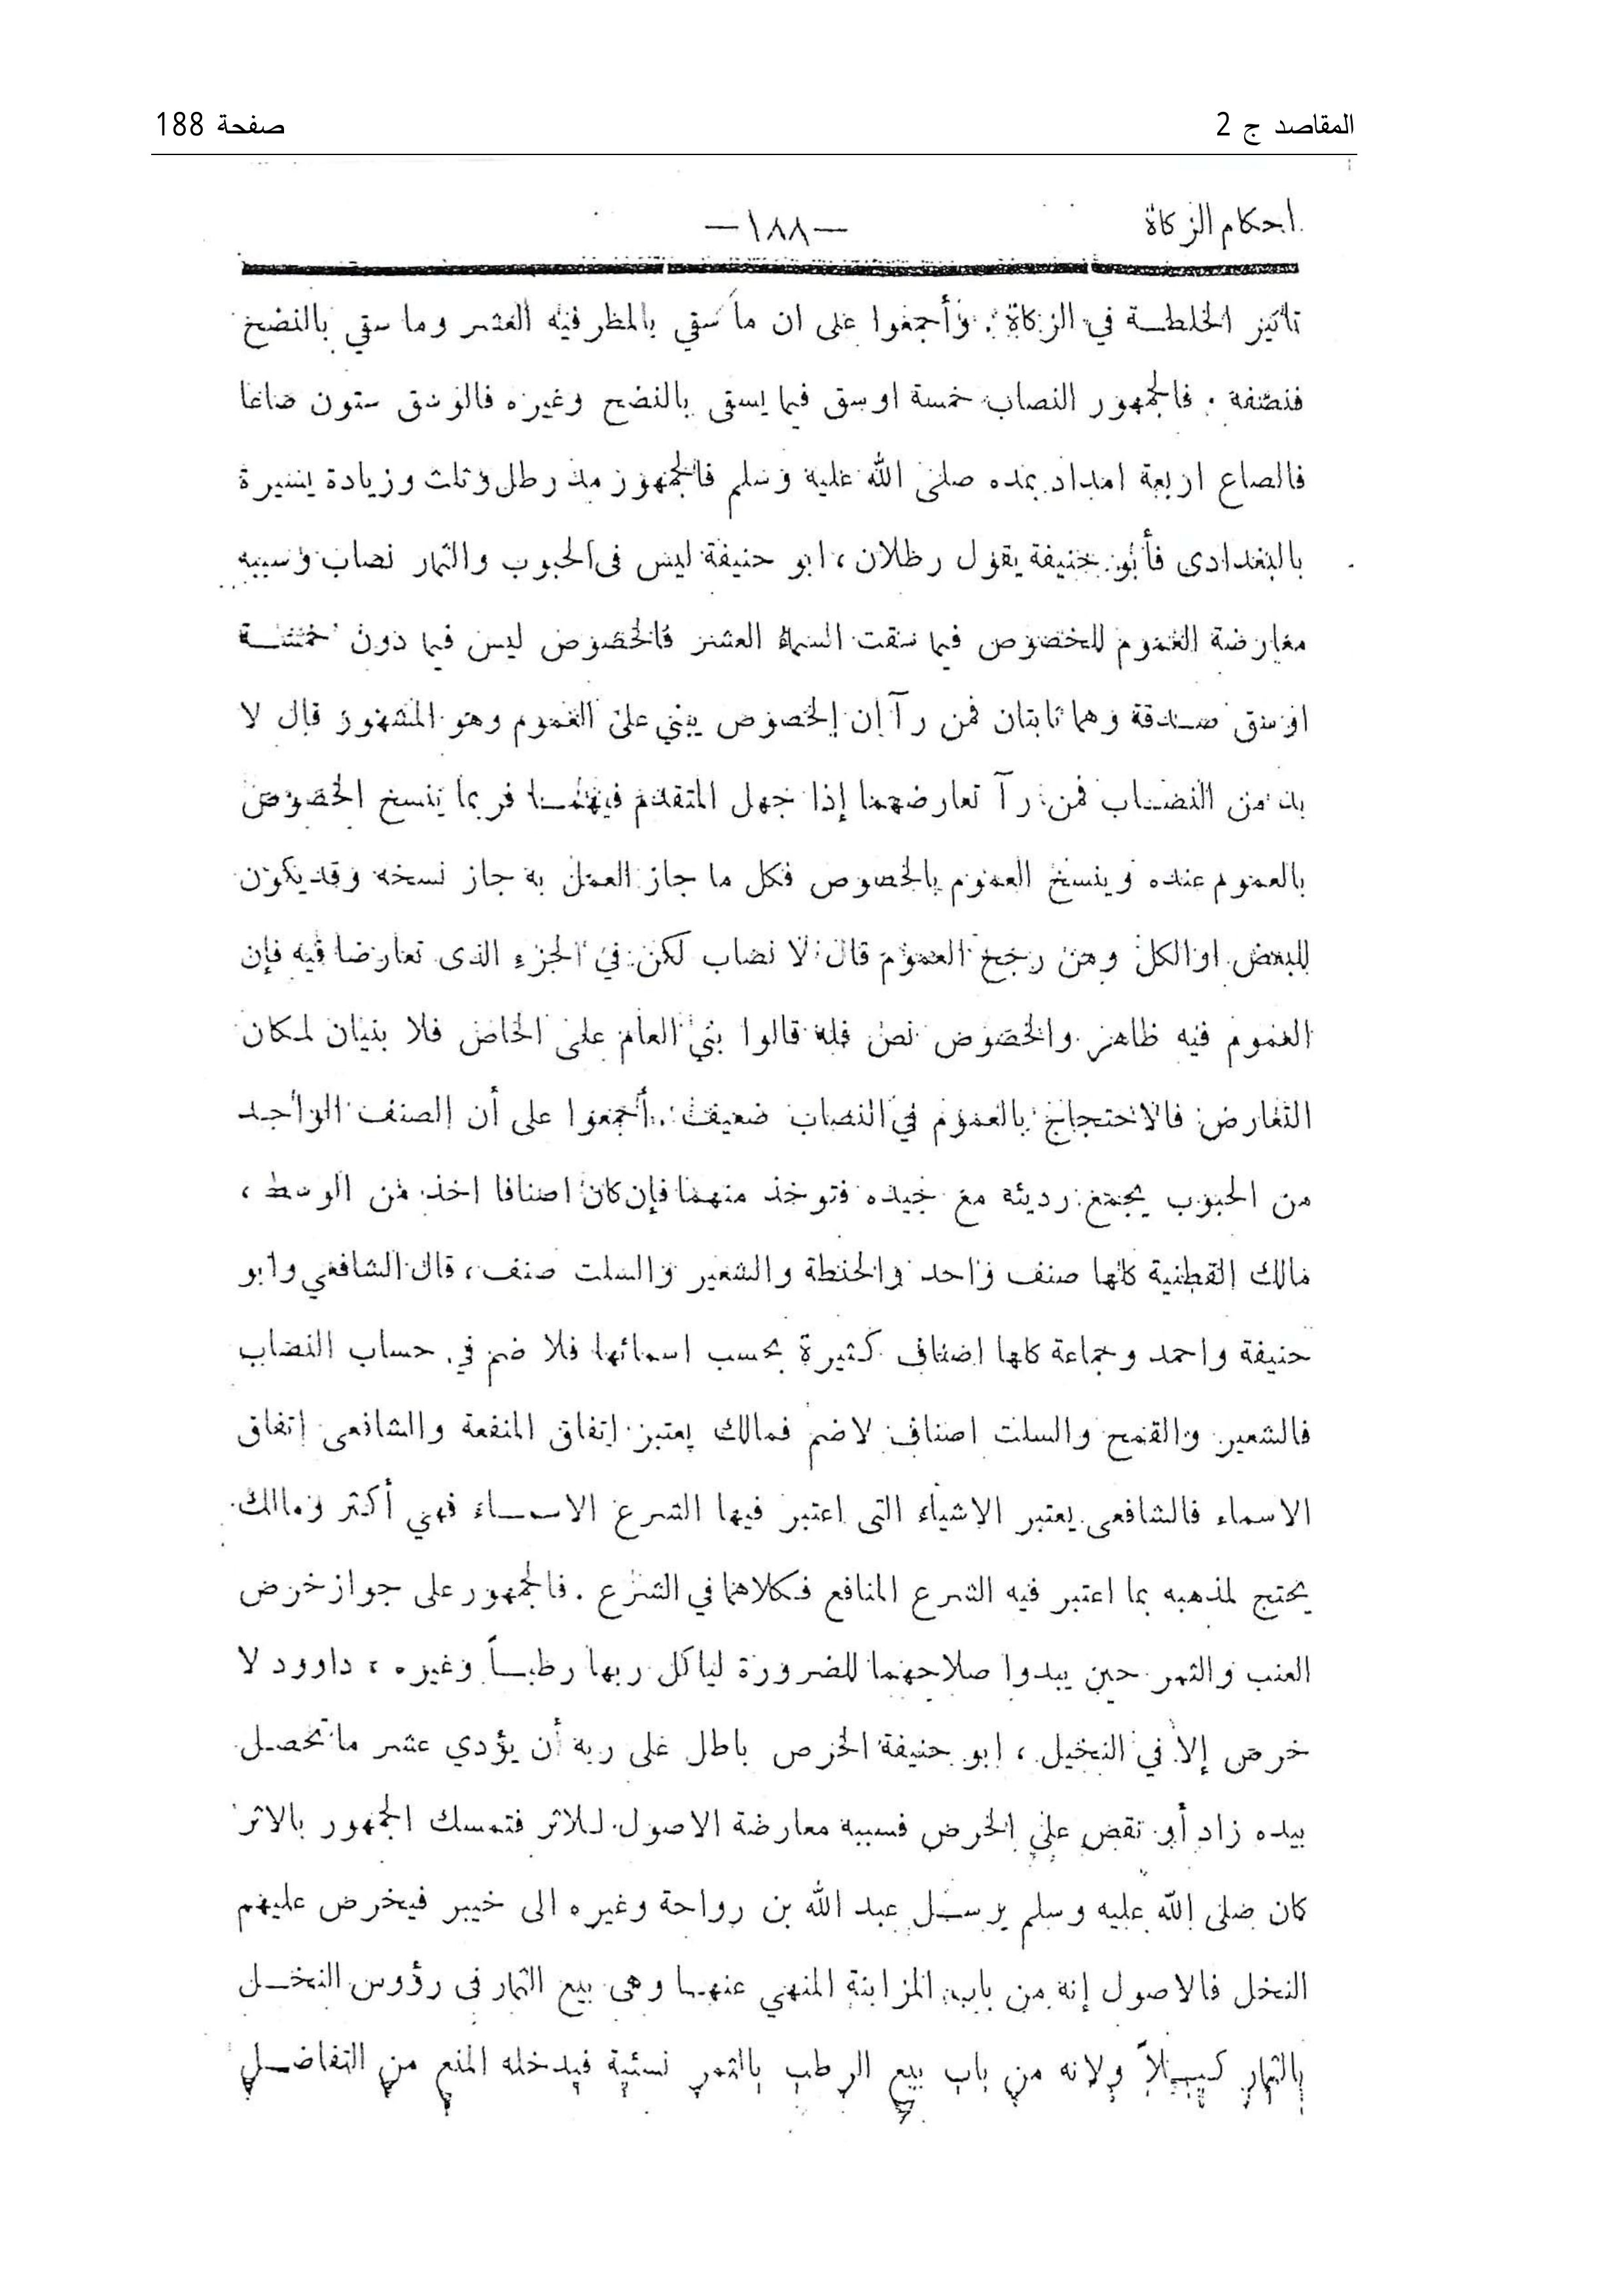 المقاصد ج 2
صفحة 188
احكام الزكاة
—١٨٨—
تأثير الخلطة في الزكاة . وأجمعوا على ان ما سقي بالمطر فيه العشر وما سقي بالنضح
فنصفه . فالجمهور النصاب خمسة اوسق فيما يسقى بالنضح وغيره فالوسق ستون صاعا
فالصاع اربعة امداد بمده صلى الله عليه وسلم فالجمهور مد رطل وثلث وزيادة يسيرة
بالبغدادى فأبو حنيفة يقول رطلان ، ابو حنيفة ليس فى الحبوب والثمار نصاب وسببه
معارضة العموم للخصوص فيما سقت السماء العشر فالخصوص ليس فيما دون خمسة
اوسق صدقة وهما ثابتان فمن رآ إن الخصوص يبني على العموم وهو المشهور قال لا
بد من النصاب فمن رآ تعارضهما إذا جهل المتقدم فيهما فربما ينسخ الخصوص
بالعموم عنده وينسخ العموم بالخصوص فكل ما جاز العمل به جاز نسخه وقد يكون
للبعض او الكل ومن رجح العموم قال لا نصاب لكن في الجزء الذى تعارضا فيه فإن
العموم فيه ظاهر والخصوص نص فله قالوا بني العام على الخاص فلا بنيان لمكان
التعارض فالاحتجاج بالعموم في النصاب ضعيف . أجمعوا على أن الصنف الواحد
من الحبوب يجتمع رديئه مع جيده فتوخذ منهما فإن كان اصنافا اخذ من الوسط ،
مالك القطنية كلها صنف واحد والحنطة والشعير والسلت صنف ، قال الشافعي وابو
حنيفة واحمد وجماعة كلها اصناف كثيرة بحسب اسمائها فلا ضم في حساب النصاب
فالشعير والقمح والسلت اصناف لا ضم فمالك يعتبر إتفاق المنفعة والشافعى إتفاق
الاسماء فالشافعى يعتبر الاشياء التى اعتبر فيها الشرع الاسماء فهي أكثر ومالك
يحتج لمذهبه بما اعتبر فيه الشرع المنافع فكلاهما في الشرع . فالجمهور على جواز خرص
العنب والتمر حين يبدوا صلاحهما للضرورة لياكل ربها رطباً وغيره ، داوود لا
خرص إلا في النخيل ، ابو حنيفة الخرص باطل على ربه أن يؤدي عشر ما تحصل
بيده زاد أو نقص على الخرص فسببه معارضة الاصول للاثر فتمسك الجمهور بالاثر
كان صلى الله عليه وسلم يرسل عبد الله بن رواحة وغيره الى خيبر فيخرص عليهم
النخل فالاصول إنه من باب المزابنة المنهي عنها وهى بيع الثمار فى رؤوس النخل
بالثمار كيلاً ولانه من باب بيع الرطب بالتمر نسئية فيدخله المنع من التفاضل